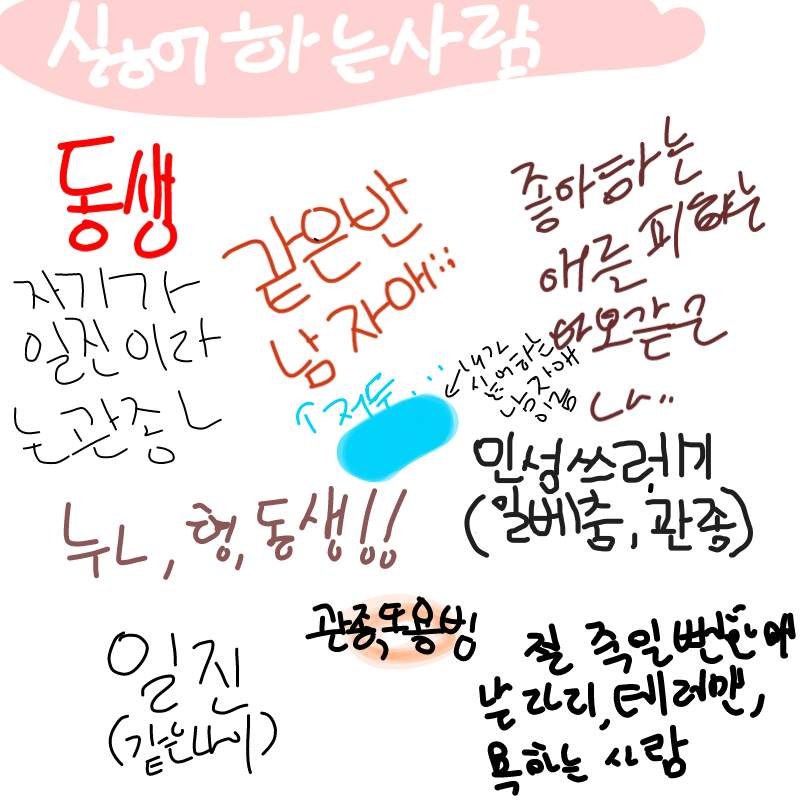 싫어하는사람
동생
같은반
남자애;;
좋아하는
애를 피하는
자기가
일진이라
는관종ㄴ
같은
ㄴㄴ..
↑저두...
내가
싫어하는
남자애
이름
인성쓰레기
(일베충,관종)
누나,형,동생!!
관종,또용빙
일진
(같은나이)
절 죽일뻔한애
날라리,테러맨,
욕하는 사람